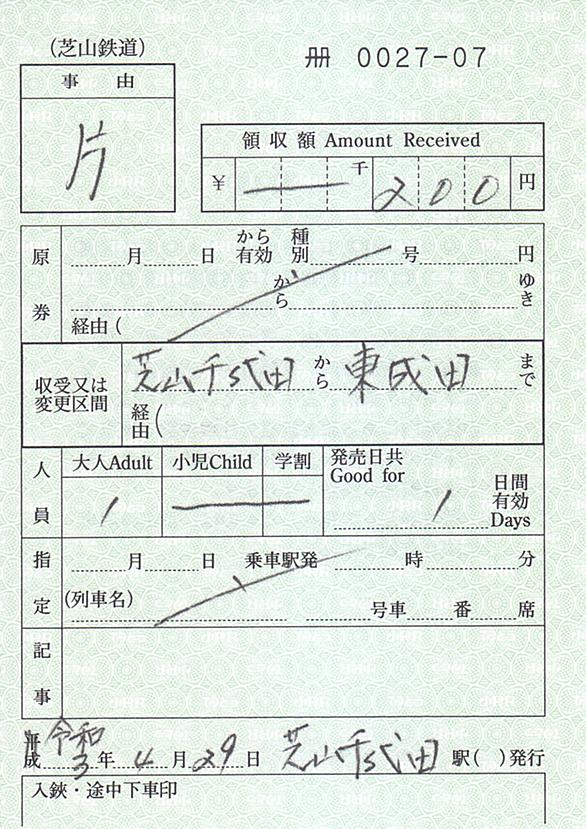 (芝山鉄道)
冊 0027-07
事由
片
領収額 Amount Received
¥ 千 200 円
原券
月 日 から有効 種別 号 円
から ゆき
経由(
収受又は変更区間
芝山千代田 から 東成田 まで
経由(
人員
大人Adult 小児Child 学割 発売日共 Good for
1 1 日間有効 Days
指定
月 日 乗車駅発 時 分
(列車名) 号車 番 席
記事
平成 令和 3年 4月 29日 芝山千代田 駅( )発行
入鋏・途中下車印